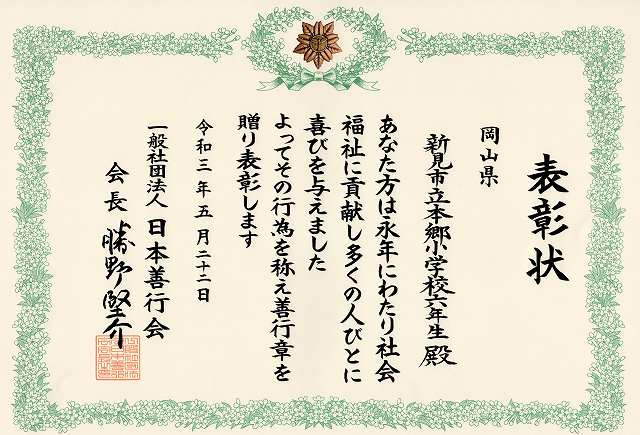 表彰状
岡山県
新見市立本郷小学校六年生 殿
あなた方は永年にわたり社会
福祉に貢献し多くの人びとに
喜びを与えました
よってその行為を称え善行章を
贈り表彰します
令和三年五月二十二日
一般社団法人 日本善行会
会長 勝野堅介